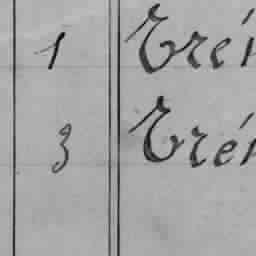 1 Trén
3 Trén